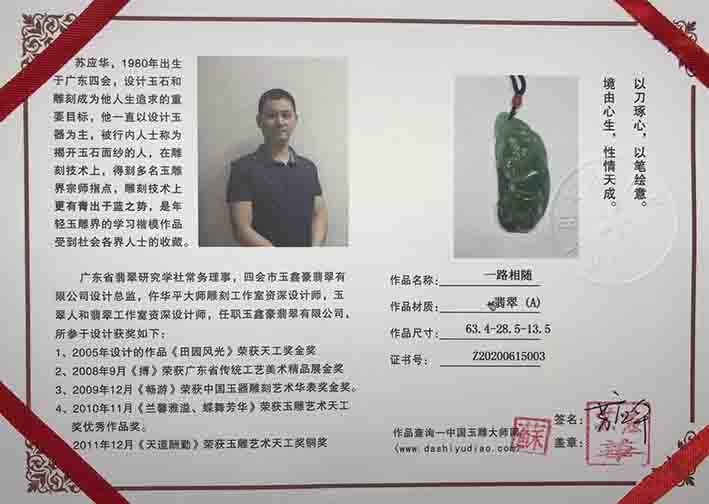 苏应华，1980年出生
于广东四会，设计玉石和
雕刻成为他人生追求的重
要目标，他一直以设计玉
器为主，被行内人士称为
揭开玉石面纱的人，在雕
刻技术上，得到多名玉雕
界宗师指点，雕刻技术上
更有青出于蓝之势，是年
轻玉雕界的学习楷模作品
受到社会各界人士的收藏。
以刀琢心，以笔绘意。
境由心生，性情天成。
广东省翡翠研究学社常务理事，四会市玉鑫豪翡翠有
限公司设计总监，仵华平大师雕刻工作室资深设计师，玉
翠人和翡翠工作室资深设计师，任职玉鑫豪翡翠有限公司，
所参于设计获奖如下：
1、2005年设计的作品《田园风光》荣获天工奖金奖
2、2008年9月《搏》荣获广东省传统工艺美术精品展金奖
3、2009年12月《畅游》荣获中国玉器雕刻艺术华表奖金奖。
4、2010年11月《兰馨雅溢、蝶舞芳华》荣获玉雕艺术天工
奖优秀作品奖。
2011年12月《天道酬勤》荣获玉雕艺术天工奖铜奖
作品名称： 一路相随
作品材质： 翡翠 (A)
作品尺寸： 63.4-28.5-13.5
证书号： Z20200615003
作品查询—中国玉雕大师网
(www.dashiyudiao.com)
蘇
签名：
盖章：